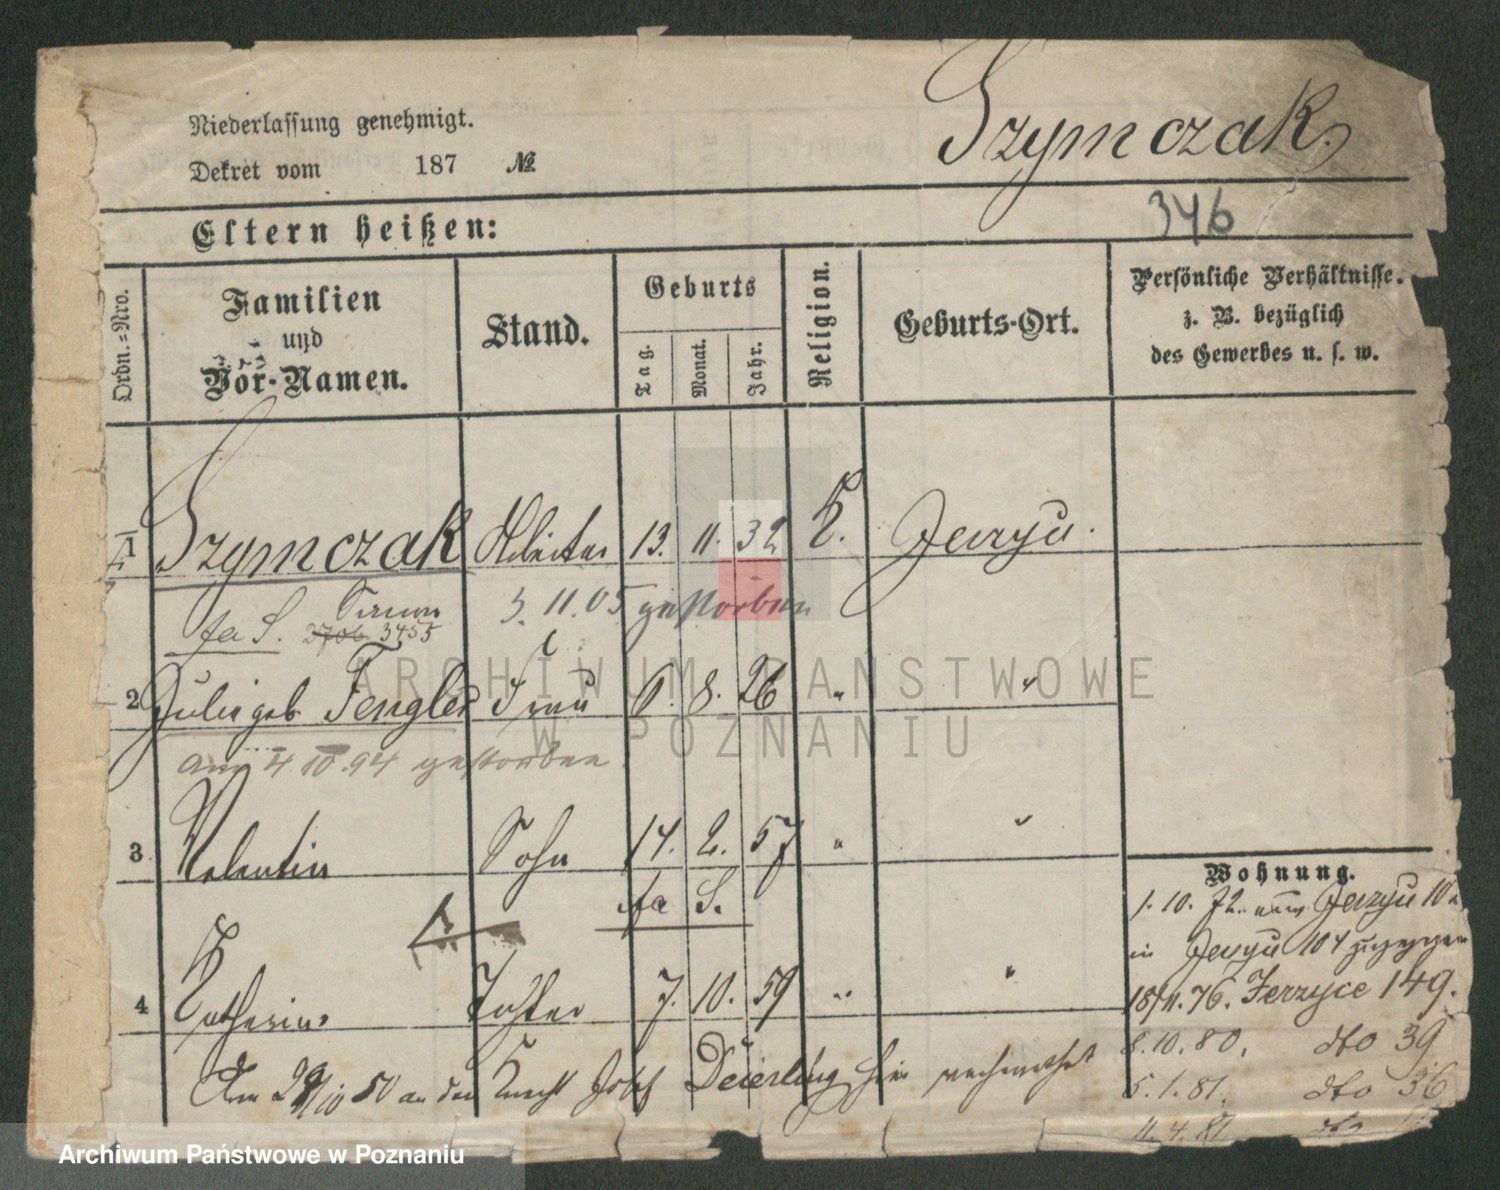 Niederlassung genehmigt.
Szymczak.
Dekret vom 187 №
346
Eltern heißen:
Ordn.=Nro.
Familien
und
Vor-Namen.
Stand.
Geburts
Tag.
Monat.
Jahr.
Religion.
Geburts-Ort.
Persönliche Verhältnisse.
z. B. bezüglich
des Gewerbes u. s. w.
1 Szymczak Arbeiter 13. 11. 32 K. Jerzyce.
Simon 3. 11. 05 gestorben
fa S. 2706 3455
2 Julie geb Fengler Frau 6. 8. 26 " "
am 4 10. 94 gestorben
3 Valentin Sohn 14. 2. 57 " "
fa S.
4 Katharina Tochter 7. 10. 59 " "
Am 29/10 80 an den Knecht Josef Deierling hier verheirathet
Wohnung.
1. 10. 72. aus Jerzyce 10
in Jerzyce 104 zugezogen
18/11. 76. Jerzyce 149.
8. 10. 80. dto 39
5. 1. 81. dto 36
11. 4. 81 dto
ARCHIWUM PAŃSTWOWE
W POZNANIU
Archiwum Państwowe w Poznaniu